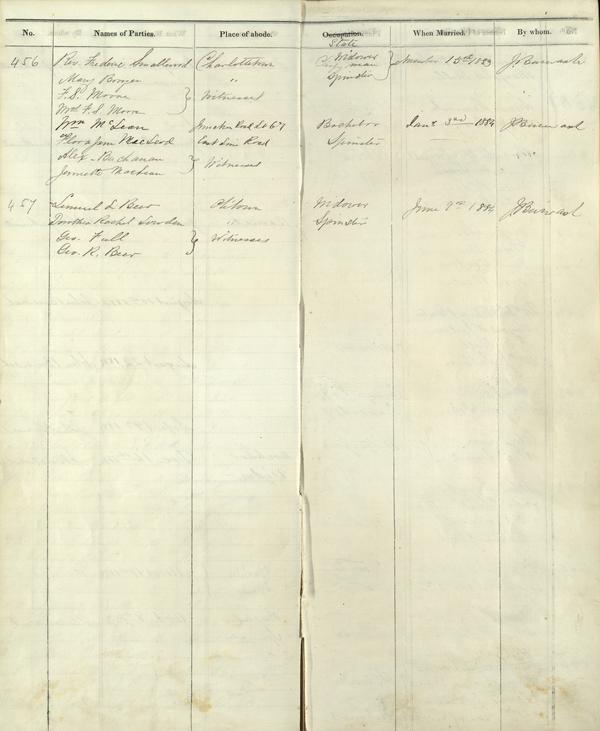 No. Names of Parties. Place of abode. Occupation. When Married. By whom.
State
456 Rev. Frederic Smallwood Charlottetown Clergyman Widower 15th 1883 J. Burwash
Mary Bovyer " Spinster
F. S. Moore } Witnesses
Mrs F. S. Moore
Wm McLean Road Lot 67 Bachelor Jany 3rd 1884 J Burwash
Flora Jane MacLeod Road Spinster
Alex. Buchanan } Witnesses
Jennette MacLean
457 Lemuel L Beer Widower June 9th 1884 J Burwash
Dorothea Rachel Lowden " Spinster
Geo. Full } Witnesses
Geo. R. Beer